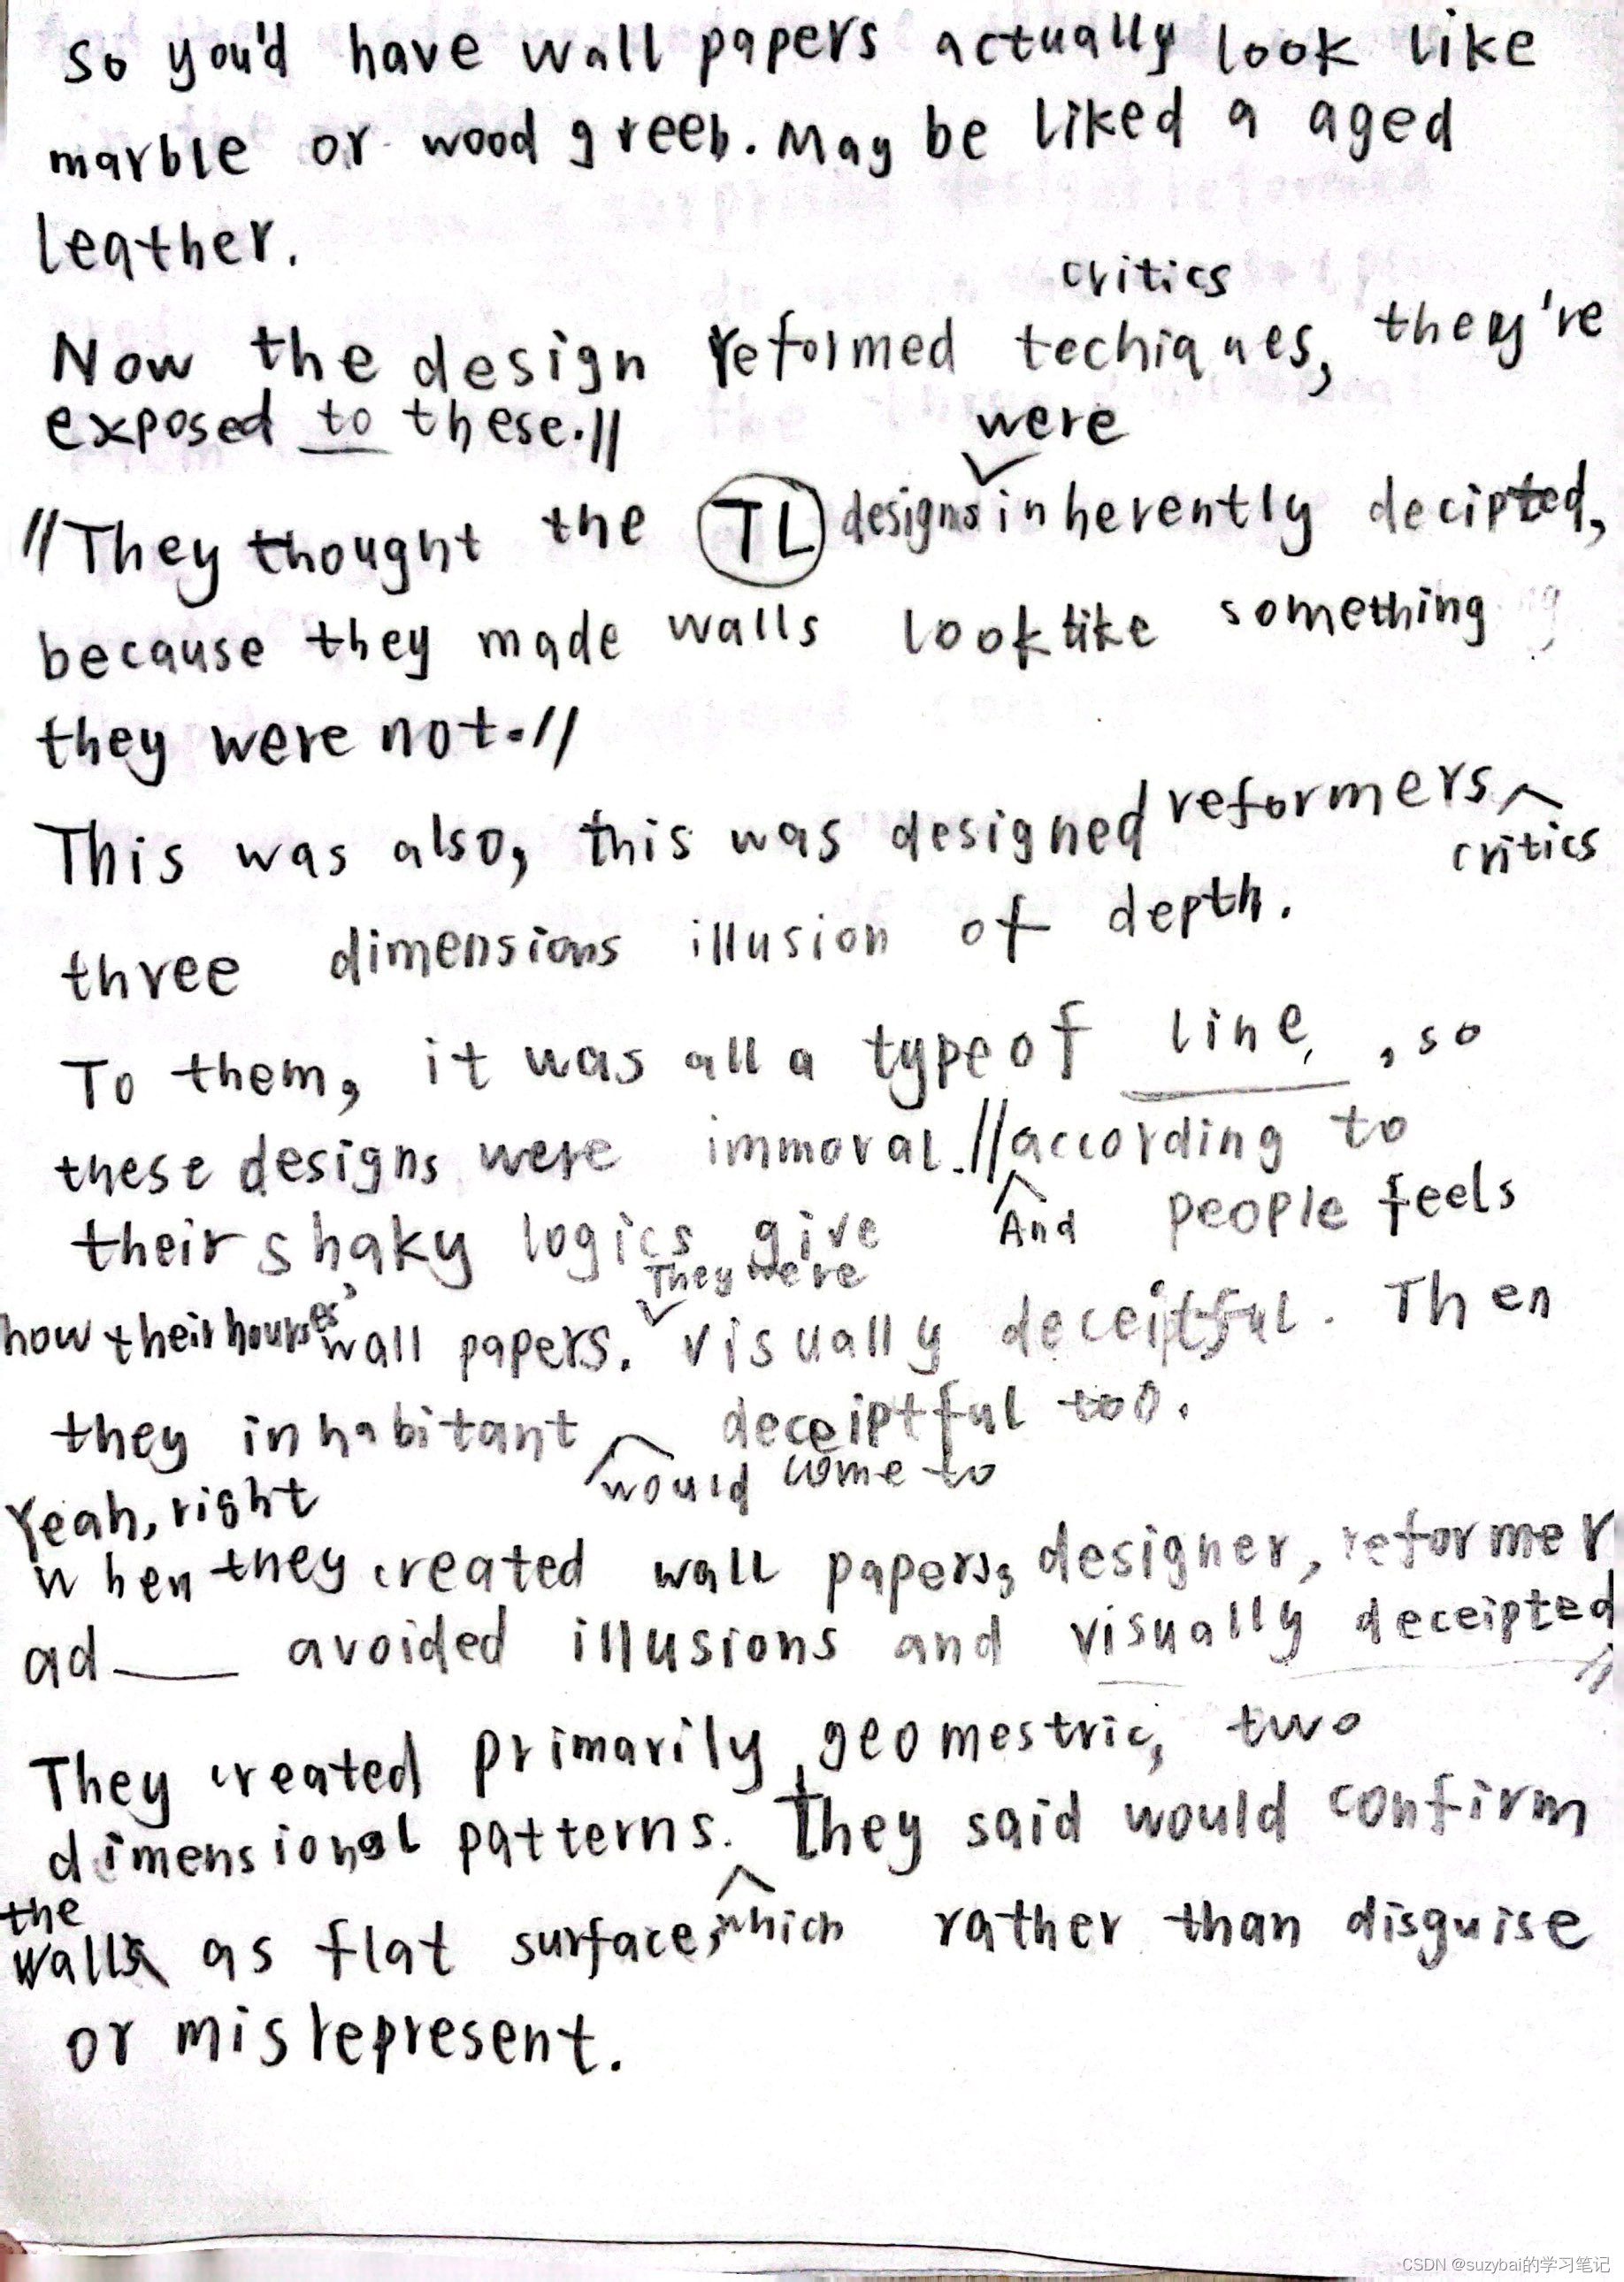 so you'd have wall papers actually look like
marble or wood greeb. May be liked a aged
leather.
critics
Now the design reformed techiques, they're
exposed to these.//
were
//They thought the TL designs inherently decipted,
because they made walls look like something
they were not.//
This was also, this was designed reformers
critics
three dimensions illusion of depth.
To them, it was all a type of line, so
these designs were immoral.//according to
And people feels
their shaky logics give
They were
how their houses' wall papers. visually deceitful. Then
they inhabitant deceiptful too.
would come to
Yeah, right
when they created wall papers, designer, reformer
ad___ avoided illusions and visually deceipted
//
They created primarily, geomestric, two
dimensional patterns. They said would confirm
the
walls as flat surface, which rather than disguise
or misrepresent.
CSDN @suzybai的学习笔记